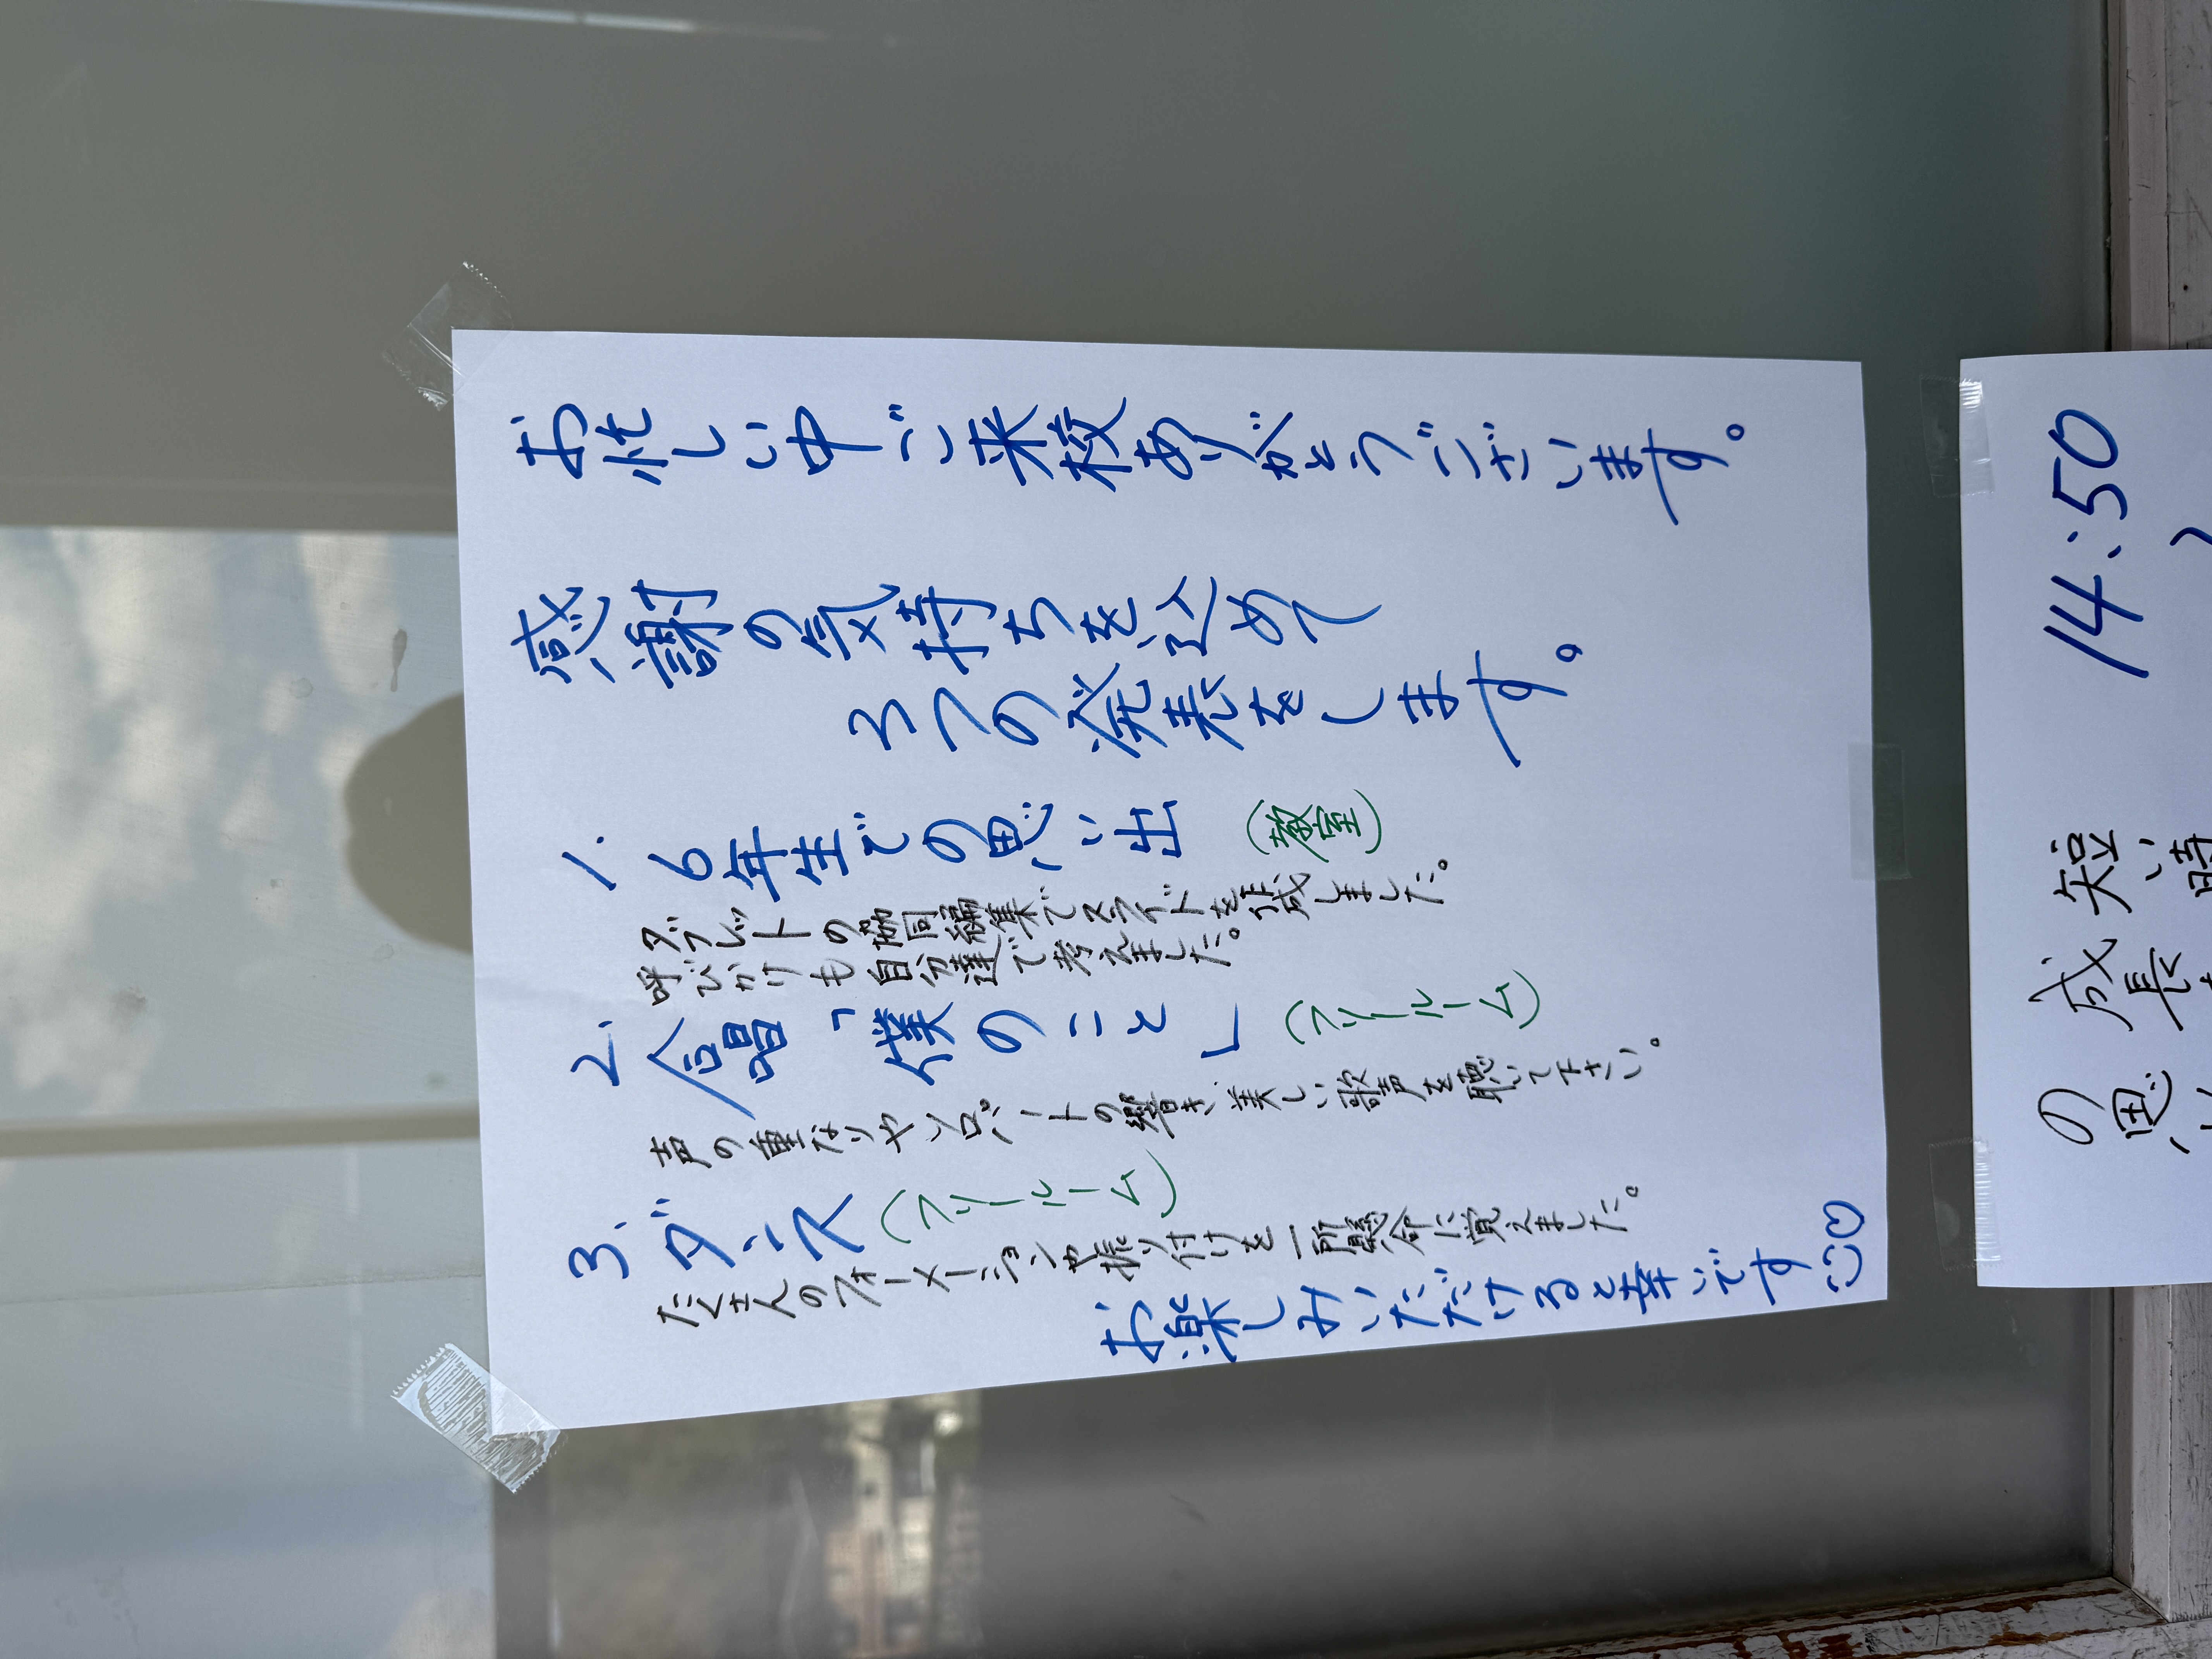 お忙しい中ご来校ありがとうございます。
感謝の気持ちを込めて
3つの発表をします。
1. 6年生での思い出 (教室)
タブレットの協同編集でスライドを作成しました。
呼びかけも自分達で考えました。
2. 合唱「僕のこと」 (フリールーム)
声の重なりやソロパートの響き、美しい歌声を聴いて下さい。
3. ダンス (フリールーム)
たくさんのフォーメーションや振り付けを一所懸命に覚えました。
お楽しみいただけると幸いです
14:50
短
い
時
成
長
の
思